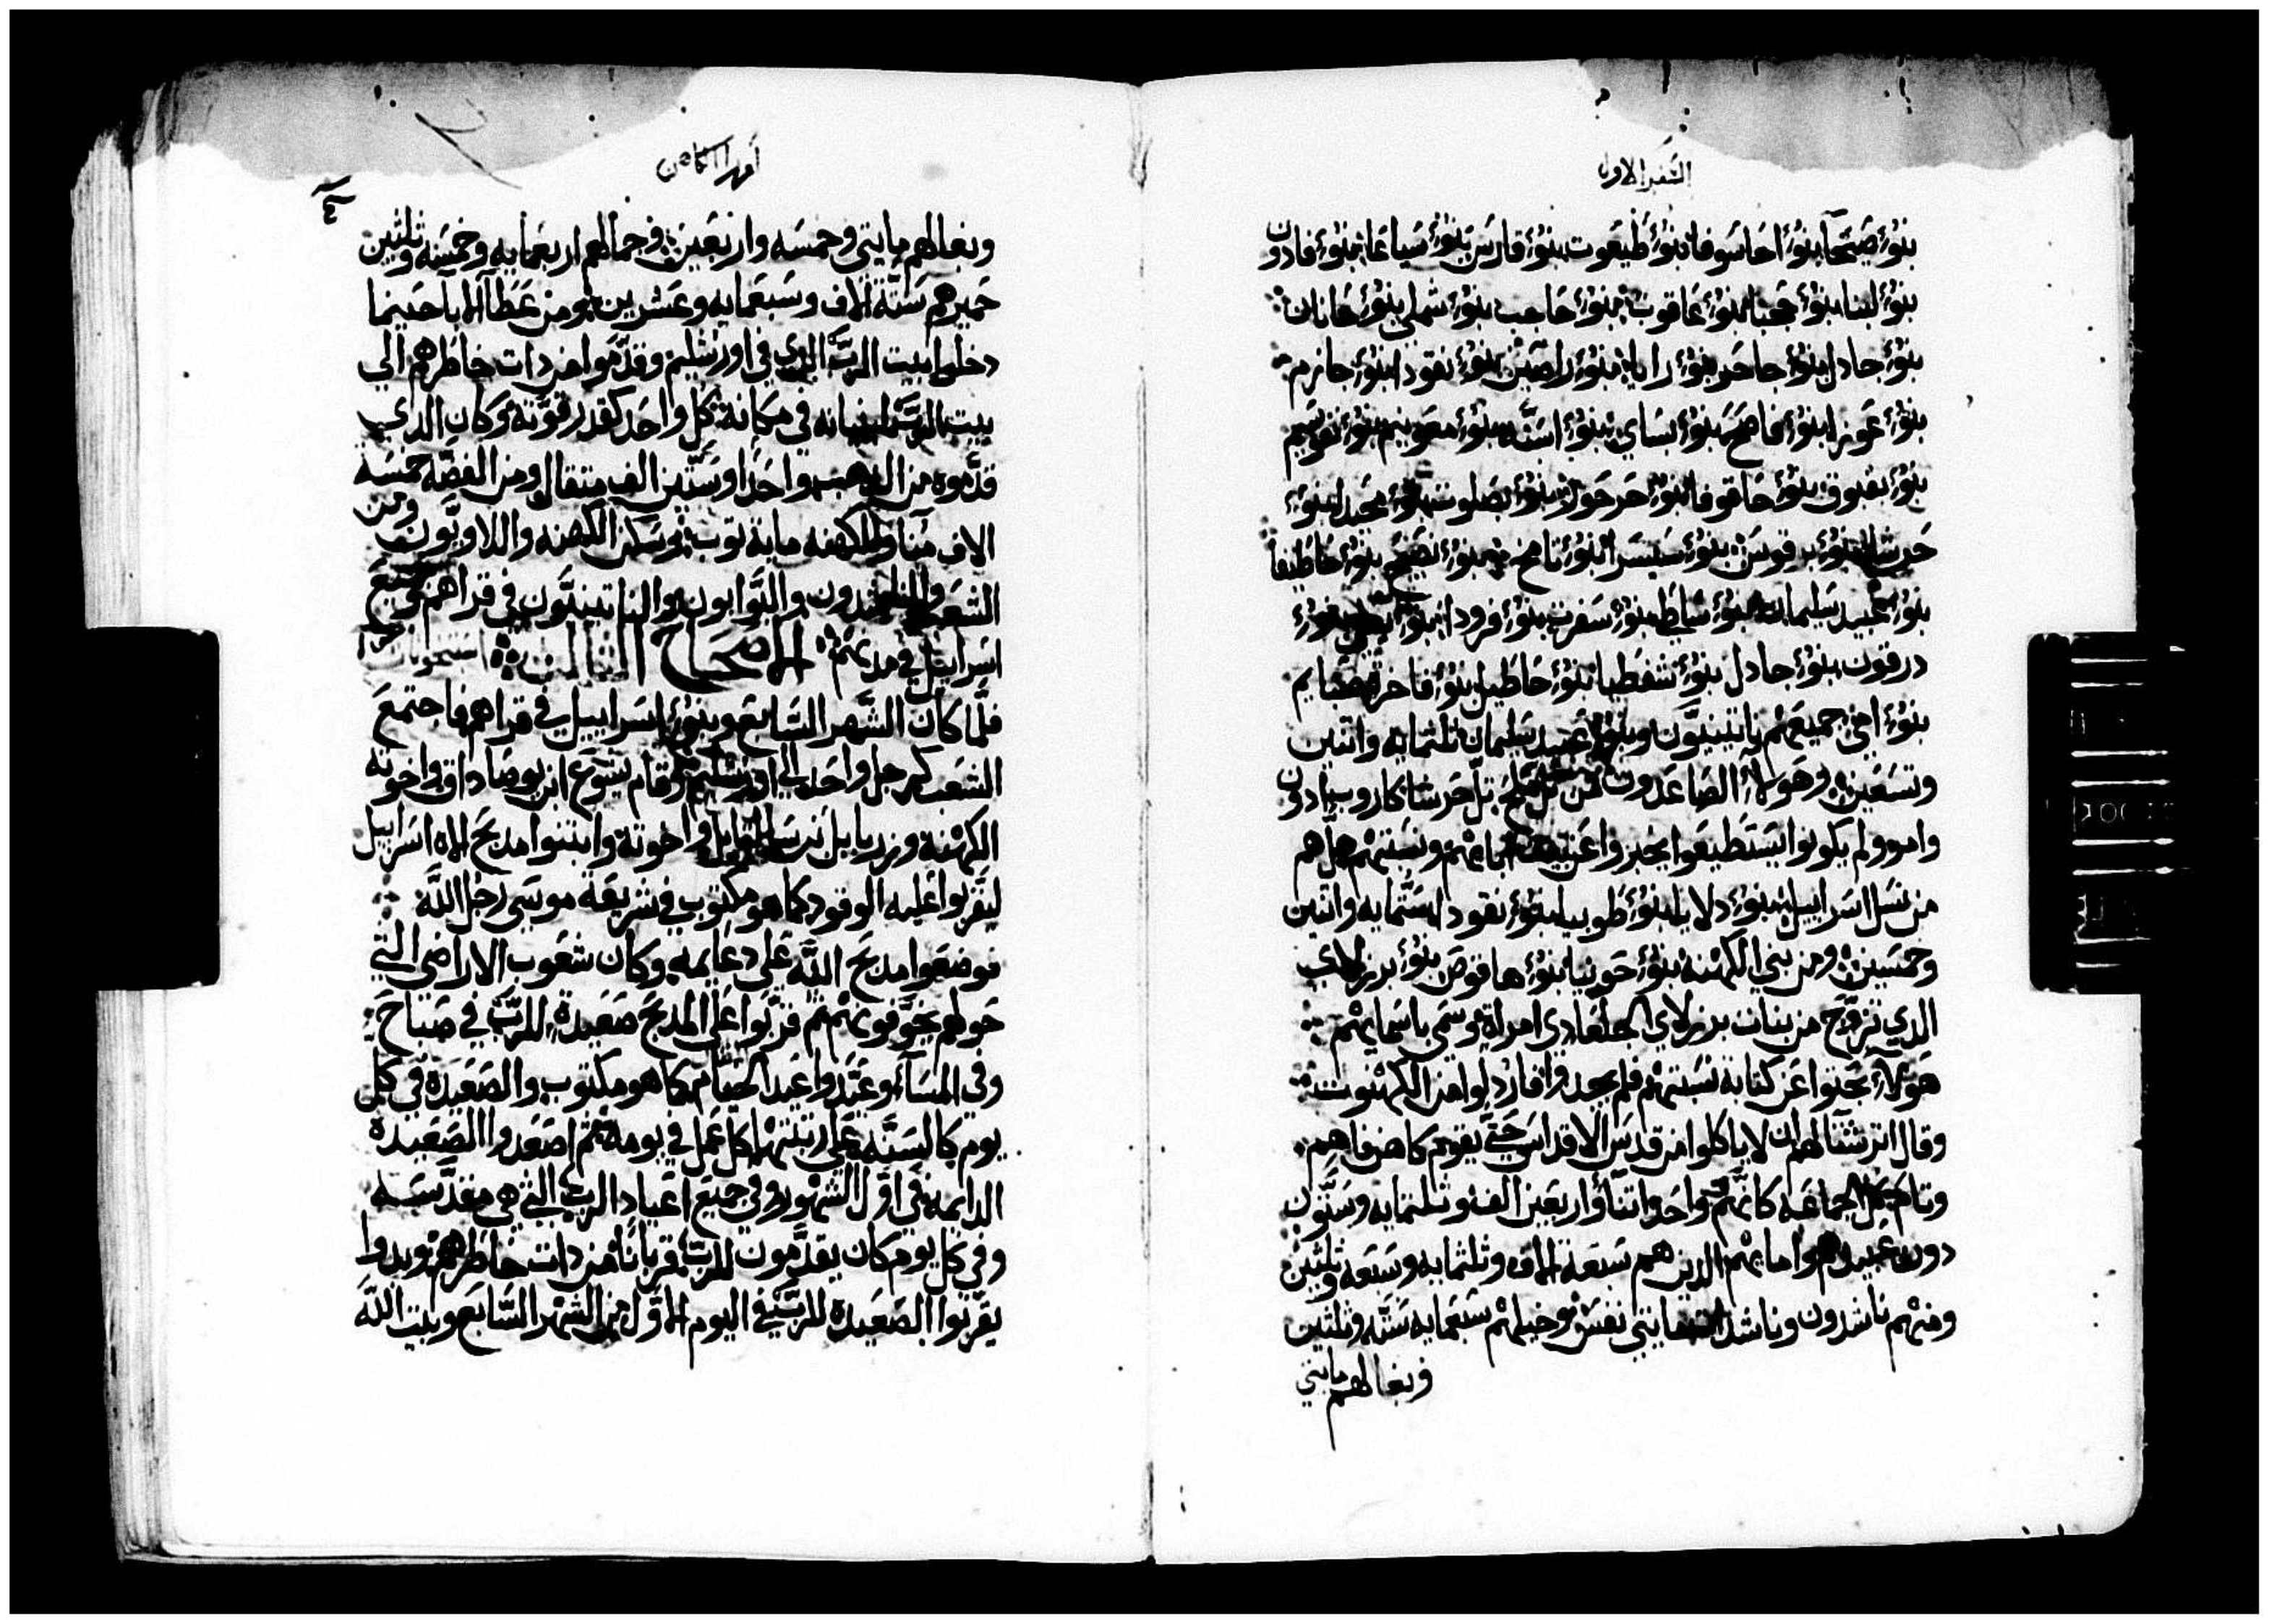 السفر الاول
بنوُ صيحآ بنوُ احاسوفا بنوُ طبعوت بنوُ قارس بنوُ سياعا بنوُ فادون
بنوُ لبنا بنوُ حجبا بنوُ عاقوب بنوُ حاجب بنوُ شملي بنوُ حانان
بنوُ جادل بنوُ جاحر بنوُ رايا بنوُ راصين بنوُ نقودا بنوُ جازم
بنوُ عوزا بنوُ فاصح بنوُ بساي بنوُ اسنه بنوُ معونيم بنوُ نفوسيم
بنوُ بقبوق بنوُ حاقوفا بنوُ حرحور بنوُ بصلوت بنوُ محيدا بنوُ
حرشا بنوُ برقوس بنوُ سيسرا بنوُ تامح بنوُ نصيح بنوُ حاطيفا
بنوُ عبيد سليمان بنوُ ساطي بنوُ سفرت بنوُ فرودا بنوُ بنوُ
درقون بنوُ جادل بنوُ شفطيا بنوُ حاطيل بنوُ فاخرت صبايم
بنوُ امي جميعهم ناتينيون وبنوُ عبيد سليمان ثلثمايه واتنين
وتسعين وهولآء الصاعدون من تل ملح تل حرشا كاروب ادون
وامر ولم يكونوا يستطيعوا يخبروا عن بيت ابايهم ونسبتهم هل هم
من نسل اسراييل بنوُ دلايا بنوُ طوبيا بنوُ نقودا ستمايه واتنين
وخمسين ومن بني الكهنه بنوُ حوبيا بنوُ هاقوص بنوُ برزلاي
الدي تزوج من بنات برزلاي الجلعادي امراة وسمي باسمايهم
هولآء بحتوا عن كتابة نسبتهم فلم يجدوا فازدلوا من الكهنوت
وقال اترشتا لهم ان لا ياكلوا من قدس الاقداس حتي يقوم كاهن فاهم
وتام كل الجماعه كانهم واحد واتنا واربعين الف وثلتمايه وستون
دون عبيدهم وامايهم الدين هم سبعة الاف وثلثمايه وسبعه وثلثين
ومنهم ناشدون وناشدات مايتي نفس وخيلهم سبعمايه سته وثلثين
وبغالهم مايتي
٤
وبغالهم مايتي وخمسه واربعين وجمالهم اربعمايه وخمسه وثلثين
حميرهم ستة الاف وسبعمايه وعشرين ومن عظآ الابآ حينما
دخلوا بيت الرب الدي في اورشليم وقدموا من دات خاطرهم الي
بيت الرب لبنيانه في مكانه كل واحد كقدر قوته وكان الدي
قدموه من الدهب واحدا وستين الف متقال ومن الفضه خمسة
الاف منا وللكهنه ماية توب وسكن الكهنه واللاويون ومن
الشعب والناشدون والبوابون والناتينيون في قراهم وجميع
اسراييل في مدنهم الاصحاح الثالث
فلما كان الشهر السابع وبنوُ اسراييل في قراهم فاجتمع
الشعب كرجل واحد الي اورشليم وقام يشوع ابن يوصاداق واخوته
الكهنة وزربابل بن شالتايل واخوته وابتنوا مدبح الاه اسراييل
ليقربوا عليه الوقود كما هو مكتوب في شريعة موسي رجل الله
فوضعوا مدبح الله علي دعايمه وكان شعوب الاراضي التي
حولهم يخوفونهم ثم قربوا علي المدبح صعيدة للرب في صباح
وفي المسآء وعيدوا عيد الخيام كما هو مكتوب والصعيده في كل
يوم كالسنة علي رتبتها كل عمل في يومه ثم اصعدوا الصعيدة
الدايمه في اول الشهور وفي جميع اعياد الرب التي هي مقدسه
وفي كل يوم كان يقدمون للرب قربانا من دات خاطرهم وبدوا
يقربوا الصعيده للرب في اليوم الاول من الشهر السابع وبيت الله